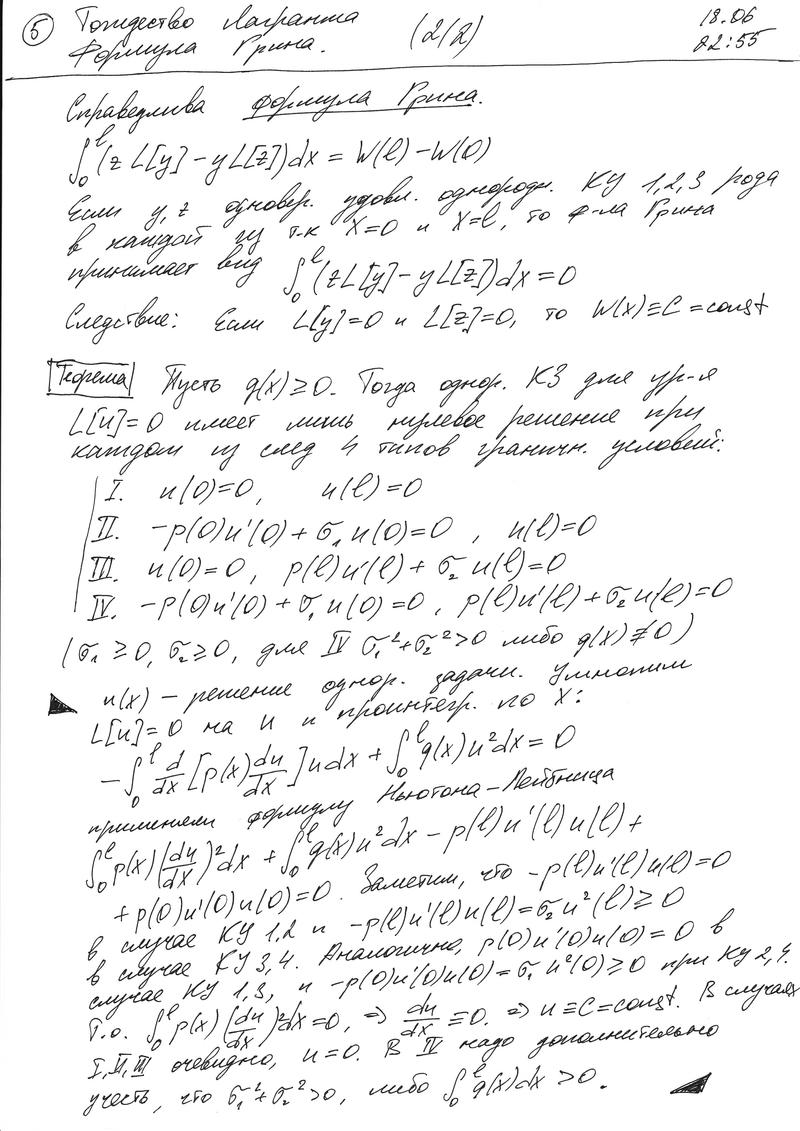 ⑤ Тождество Лагранжа (2/2) 18.06
Формула Грина. 22:55
Справедлива формула Грина.
∫₀ˡ (z L[y] − y L[z]) dx = W(l) − W(0)
Если y, z одновр. удовл. однородн. КУ 1,2,3 рода
в каждой из т-к X=0 и X=l, то ф-ла Грина
принимает вид ∫₀ˡ (z L[y] − y L[z]) dx = 0
Следствие: Если L[y]=0 и L[z]=0, то W(x) ≡ C = const
Теорема Пусть q(x) ≥ 0. Тогда однор. КЗ для ур-я
L[u]=0 имеет лишь нулевое решение при
каждом из след 4 типов граничн. условий:
I. u(0)=0, u(l)=0
II. −p(0)u'(0) + σ₁ u(0)=0 , u(l)=0
III. u(0)=0, p(l)u'(l) + σ₂ u(l)=0
IV. −p(0)u'(0) + σ₁ u(0)=0, p(l)u'(l) + σ₂ u(l)=0
(σ₁ ≥ 0, σ₂ ≥ 0, для IV σ₁² + σ₂² > 0 либо q(x) ≢ 0)
u(x) – решение однор. задачи. Умножим
L[u]=0 на u и проинтегр. по X:
−∫₀ˡ d/dx [p(x) du/dx] u dx + ∫₀ˡ q(x) u² dx = 0
применяем формулу Ньютона–Лейбница
∫₀ˡ p(x) (du/dx)² dx + ∫₀ˡ q(x) u² dx − p(l) u'(l) u(l) +
+ p(0) u'(0) u(0) = 0. Заметим, что −p(l) u'(l) u(l) = 0
в случае КУ 1,2 и −p(l) u'(l) u(l) = σ₂ u²(l) ≥ 0
в случае КУ 3,4. Аналогично, p(0) u'(0) u(0) = 0 в
случае КУ 1,3, и −p(0) u'(0) u(0) = σ₁ u²(0) ≥ 0 при КУ 2,4.
Т.о. ∫₀ˡ p(x) (du/dx)² dx = 0, ⇒ du/dx ≡ 0. ⇒ u ≡ C = const. В случаях
I, II, III очевидно, u=0. В IV надо дополнительно
учесть, что σ₁² + σ₂² > 0, либо ∫₀ˡ q(x) dx > 0.